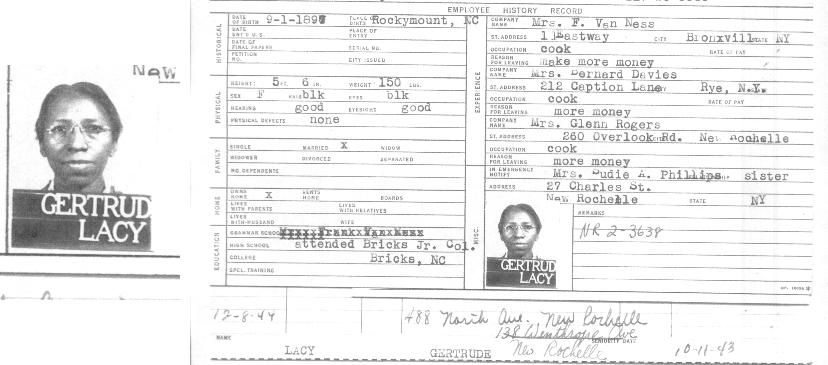 New
GERTRUD
LACY
EMPLOYEE HISTORY RECORD
HISTORICAL
DATE OF BIRTH 9-1-1897 PLACE OF BIRTH Rockymount, NC
DATE ENT'D U.S. PLACE OF ENTRY
DATE OF FINAL PAPERS SERIAL NO.
PETITION NO. CITY ISSUED
PHYSICAL
HEIGHT: 5 FT. 6 IN. WEIGHT 150 LBS.
SEX F HAIR blk EYES blk
HEARING good EYESIGHT good
PHYSICAL DEFECTS none
FAMILY
SINGLE MARRIED X WIDOW
WIDOWER DIVORCED SEPARATED
NO. DEPENDENTS
HOME
OWNS HOME X RENTS HOME BOARDS
LIVES WITH PARENTS LIVES WITH RELATIVES
LIVES WITH-HUSBAND WIFE
EDUCATION
GRAMMAR SCHOOL
HIGH SCHOOL attended Bricks Jr. Col.
COLLEGE Bricks, NC
SPCL. TRAINING
EXPERIENCE
COMPANY NAME Mrs. F. Van Ness
ST. ADDRESS 1 Eastway CITY Bronxvill STATE NY
OCCUPATION cook RATE OF PAY
REASON FOR LEAVING make more money
COMPANY NAME Mrs. Bernard Davies
ST. ADDRESS 212 Caption Lane Rye, N.Y.
OCCUPATION cook RATE OF PAY
REASON FOR LEAVING more money
COMPANY NAME Mrs. Glenn Rogers
ST. ADDRESS 260 Overlook Rd. New Rochelle
OCCUPATION cook
REASON FOR LEAVING more money
MISC.
IN EMERGENCY NOTIFY Mrs. Dudie A. Phillips sister
ADDRESS 27 Charles St.
New Rochelle STATE NY
GERTRUD
LACY
REMARKS
NR 2-3638
12-8-44 488 North Ave. New Rochelle
138 Winthrope Ave
NAME SENIORITY DATE
LACY GERTRUDE New Rochelle 10-11-43